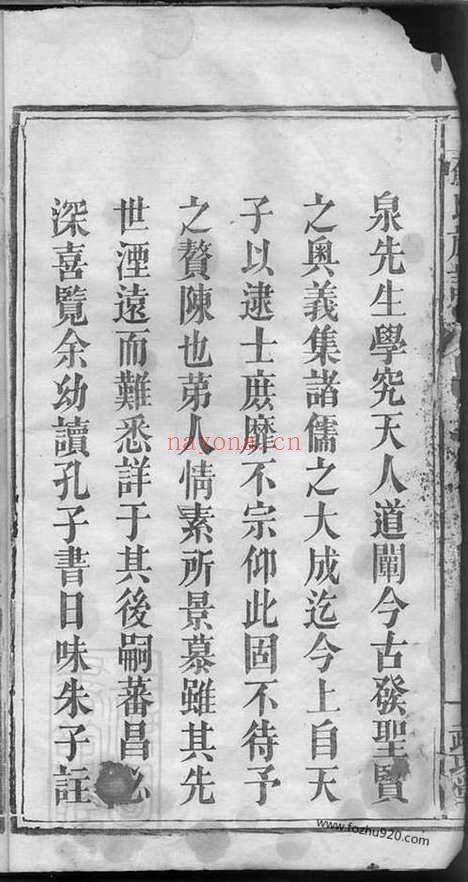 泉先生學究天人道闡今古發聖賢
之奧義集諸儒之大成迄今上自天
子以逮士庶靡不宗仰此固不待予
之贅陳也苐人情素所景慕雖其先
世湮遠而難悉詳于其後嗣蕃昌必
深喜覽余幼讀孔子書日味朱子註
nayona.cn
www.fozhu920.com